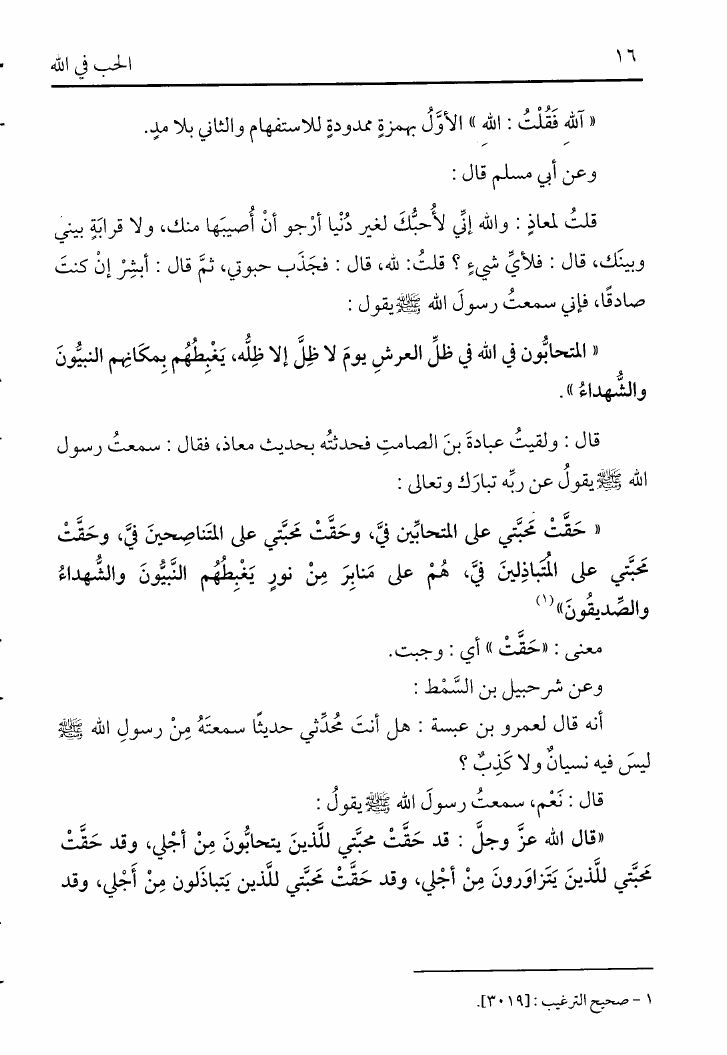 ١٦ الحب في الله
« آللهِ فَقُلْتُ : اللهِ » الأوَّلُ بهمزةٍ ممدودةٍ للاستفهام والثاني بلا مدٍ.
وعن أبي مسلم قال :
قلتُ لمعاذٍ : والله إنِّي لأُحبُّكَ لغير دُنْيا أرْجو أنْ أُصيبَها منك، ولا قرابَةٍ بيني
وبينَك، قال : فلأيِّ شيءٍ ؟ قلتُ: لله، قال : فجَذَب حبوتي، ثمَّ قال : أبشِرْ إنْ كنتَ
صادقًا، فإني سمعتُ رسولَ الله ﷺ يقول :
« المتحابُّون في الله في ظلِّ العرشِ يومَ لا ظِلَّ إلا ظِلُّه، يَغْبِطُهُم بِمكَانِهم النبيُّونَ
والشُّهداءُ ».
قال : ولقيتُ عبادةَ بنَ الصامتِ فحدثتُه بحديث معاذ، فقال : سمعتُ رسول
الله ﷺ يقولُ عن ربِّه تبارَك وتعالى :
« حَقَّتْ مَحَبَّتي على المتحابِّين فيَّ، وحَقَّتْ مَحَبَّتي على المتَناصِحينَ فيَّ، وحَقَّتْ
مَحَبَّتي على المُتَباذِلينَ فيَّ، هُمْ على مَنابِرَ مِنْ نورٍ يَغْبِطُهُم النَّبيُّونَ والشُّهداءُ
والصِّديقُونَ»(١)
معنى : «حَقَّتْ » أي : وجبت.
وعن شرحبيل بن السَّمْط :
أنه قال لعمرو بن عبسة : هل أنتَ مُحَدِّثي حديثًا سمعتَهُ مِنْ رسولِ الله ﷺ
ليسَ فيه نسيانٌ ولا كَذِبٌ ؟
قال : نَعْم، سمعتُ رسولَ الله ﷺ يقولُ :
«قال الله عزَّ وجلَّ : قد حَقَّتْ محبَّتي للَّذينَ يتحابُّونَ مِنْ أجْلي، وقد حَقَّتْ
مَحَبَّتي للَّذينَ يَتَزاوَرونَ مِنْ أجْلي، وقد حَقَّتْ مَحَبَّتي للَّذين يَتباذَلون مِنْ أَجْلي، وقد
١ - صحيح الترغيب : [٣٠١٩].